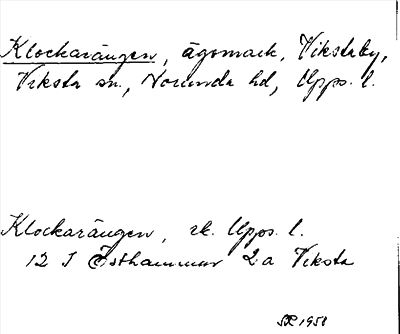 Klockarängen, ägomark, Vikstaby,
Viksta sn., Norunda hd, Upps. l.
Klockarängen, ek. Upps. l.
12 I Östhammar 2a Viksta
1958